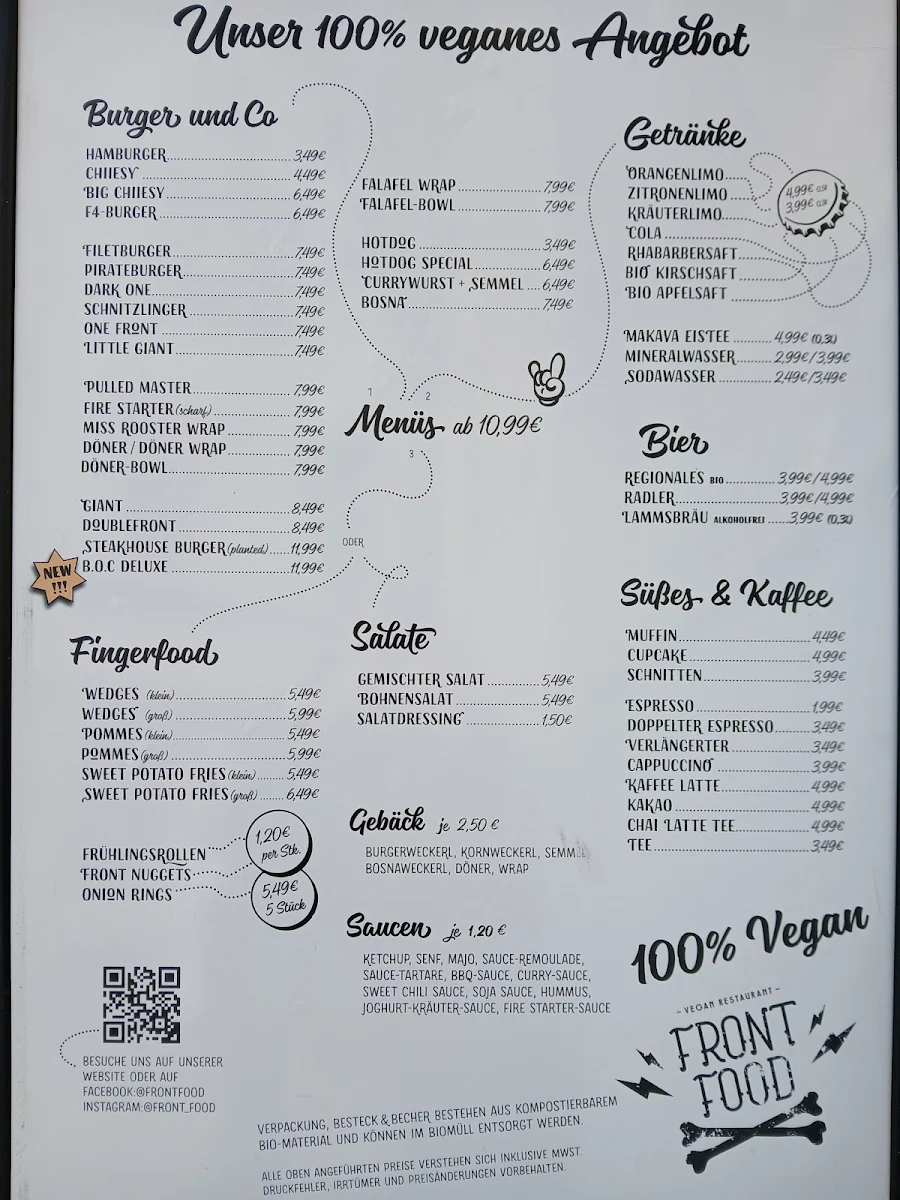 Unser 100% veganes Angebot
Burger und Co
HAMBURGER 3,49€
CHIIESY 4,49€
BIG CHIIESY 6,49€
F4-BURGER 6,49€
FILETBURGER 7,49€
PIRATEBURGER 7,49€
DARK ONE 7,49€
SCHNITZLINGER 7,49€
ONE FRONT 7,49€
LITTLE GIANT 7,49€
PULLED MASTER 7,99€
FIRE STARTER (scharf) 7,99€
MISS ROOSTER WRAP 7,99€
DÖNER / DÖNER WRAP 7,99€
DÖNER-BOWL 7,99€
GIANT 8,49€
DOUBLEFRONT 8,49€
STEAKHOUSE BURGER (planted) 11,99€
B.O.C DELUXE 11,99€
NEW
!!!
FALAFEL WRAP 7,99€
FALAFEL-BOWL 7,99€
HOTDOG 3,49€
HOTDOG SPECIAL 6,49€
CURRYWURST + SEMMEL 6,49€
BOSNA 7,49€
1
2
Menüs ab 10,99€
3
ODER
Fingerfood
WEDGES (klein) 5,49€
WEDGES (groß) 5,99€
POMMES (klein) 5,49€
POMMES (groß) 5,99€
SWEET POTATO FRIES (klein) 5,49€
SWEET POTATO FRIES (groß) 6,49€
FRÜHLINGSROLLEN
FRONT NUGGETS
ONION RINGS
1,20€
per Stk.
5,49€
5 Stück
Salate
GEMISCHTER SALAT 5,49€
BOHNENSALAT 5,49€
SALATDRESSING 1,50€
Gebäck je 2,50 €
BURGERWECKERL, KORNWECKERL, SEMMEL,
BOSNAWECKERL, DÖNER, WRAP
Saucen je 1,20 €
KETCHUP, SENF, MAJO, SAUCE-REMOULADE,
SAUCE-TARTARE, BBQ-SAUCE, CURRY-SAUCE,
SWEET CHILI SAUCE, SOJA SAUCE, HUMMUS,
JOGHURT-KRÄUTER-SAUCE, FIRE STARTER-SAUCE
Getränke
ORANGENLIMO
ZITRONENLIMO
KRÄUTERLIMO
COLA
RHABARBERSAFT
BIO KIRSCHSAFT
BIO APFELSAFT
4,99€ 0,5l
3,99€ 0,3l
MAKAVA EISTEE 4,99€ (0,3l)
MINERALWASSER 2,99€/3,99€
SODAWASSER 2,49€/3,49€
Bier
REGIONALES BIO 3,99€/4,99€
RADLER 3,99€/4,99€
LAMMSBRÄU ALKOHOLFREI 3,99€ (0,3l)
Süßes & Kaffee
MUFFIN 4,49€
CUPCAKE 4,99€
SCHNITTEN 3,99€
ESPRESSO 1,99€
DOPPELTER ESPRESSO 3,49€
VERLÄNGERTER 3,49€
CAPPUCCINO 3,99€
KAFFEE LATTE 4,99€
KAKAO 4,99€
CHAI LATTE TEE 4,99€
TEE 3,49€
100% Vegan
- VEGAN RESTAURANT -
FRONT
FOOD
BESUCHE UNS AUF UNSERER
WEBSITE ODER AUF
FACEBOOK:@FRONTFOOD
INSTAGRAM:@FRONT_FOOD
VERPACKUNG, BESTECK & BECHER BESTEHEN AUS KOMPOSTIERBAREM
BIO-MATERIAL UND KÖNNEN IM BIOMÜLL ENTSORGT WERDEN.
ALLE OBEN ANGEFÜHRTEN PREISE VERSTEHEN SICH INKLUSIVE MWST.
DRUCKFEHLER, IRRTÜMER UND PREISÄNDERUNGEN VORBEHALTEN.